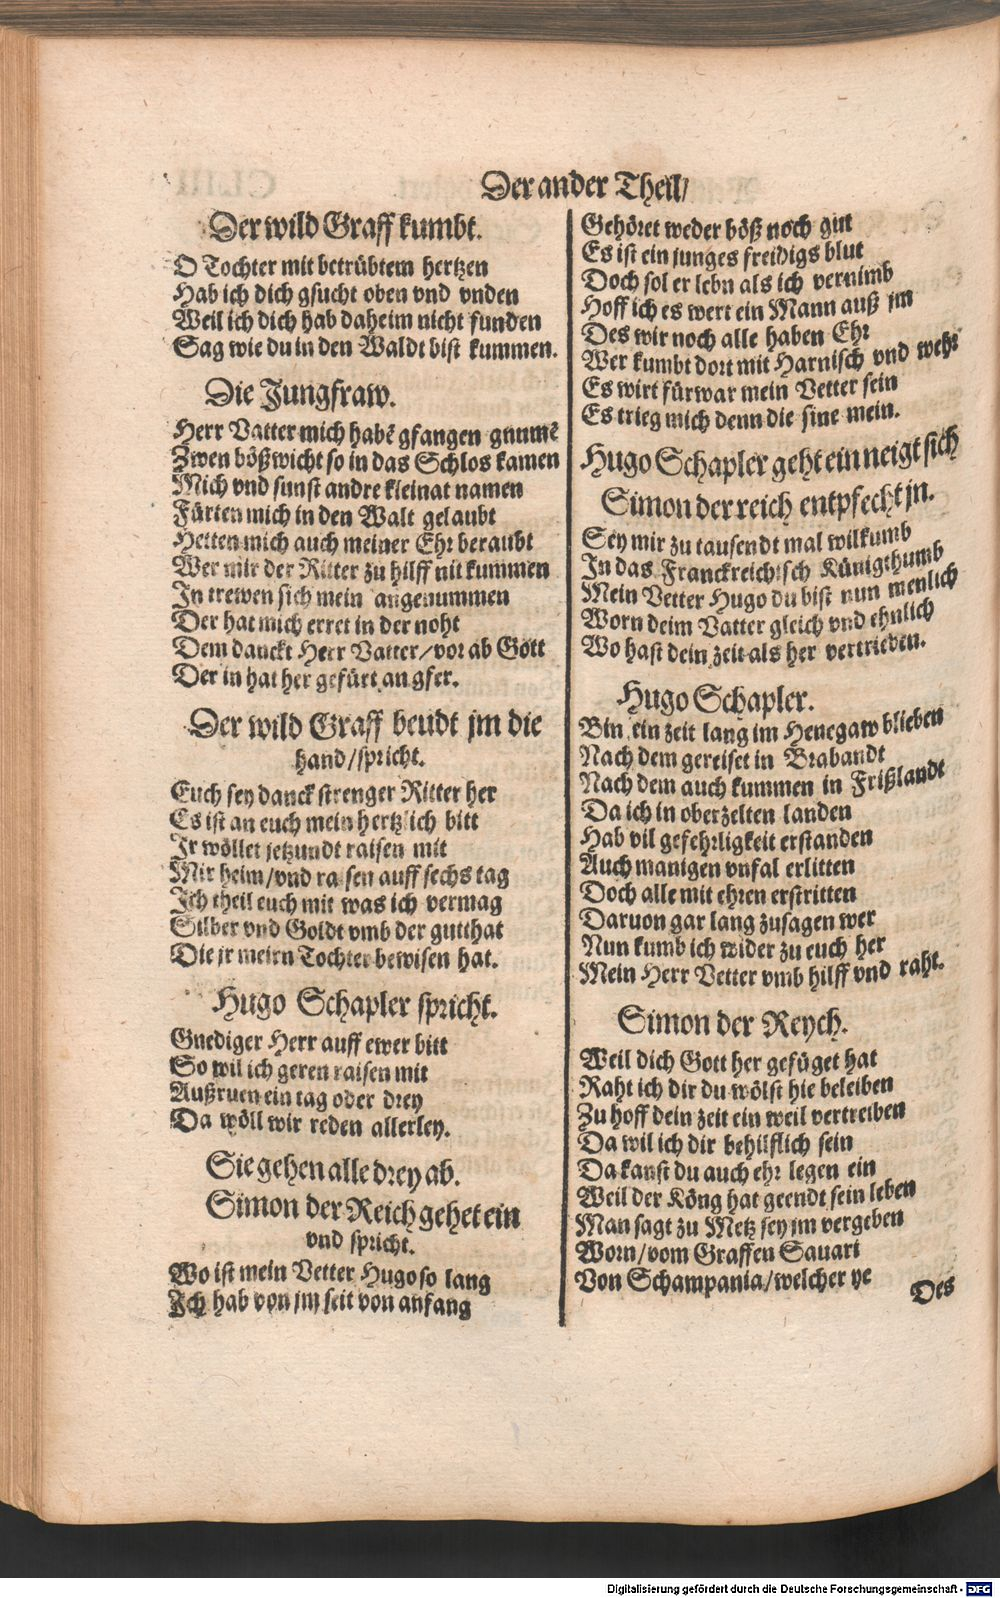 Der ander Theil/
Der wild Graff kumbt.
O Tochter mit betrübtem hertzen
Hab ich dich gsucht oben vnd vnden
Weil ich dich hab daheim nicht funden
Sag wie du in den Waldt bist kummen.
Die Jungfraw.
Herr Vatter mich habē gfangen gnumē
Zwen bößwicht so in das Schlos kamen
Mich vnd sunst andre kleinat namen
Fürten mich in den Walt gelaubt
Hetten mich auch meiner Ehr beraubt
Wer mir der Ritter zu hilff nit kummen
In trewen sich mein angenummen
Der hat mich erret in der noht
Dem danckt Herr Vatter/vor ab Gott
Der in hat her gefürt an gfer.
Der wild Graff beudt jm die
hand/spricht.
Euch sey danck strenger Ritter her
Es ist an euch mein hertzlich bitt
Ir wöllet jetzundt raisen mit
Mir heim/vnd raisen auff sechs tag
Ich theil euch mit was ich vermag
Silber vnd Goldt vmb der gutthat
Die jr meirn Tochter bewisen hat.
Hugo Schapler spricht.
Gnediger Herr auff ewer bitt
So wil ich geren raisen mit
Außruen ein tag oder drey
Da wöll wir reden allerley.
Sie gehen alle drey ab.
Simon der Reich gehet ein
vnd spricht.
Wo ist mein Vetter Hugo so lang
Ich hab von jm seit von anfang
Gehöret weder böß noch gut
Es ist ein junges freidigs blut
Doch sol er lebn als ich vernimb
Hoff ich es wert ein Mann auß jm
Des wir noch alle haben Ehr
Wer kumbt dort mit Harnisch vnd wehr
Es wirt fürwar mein Vetter sein
Es trieg mich denn die sine mein.
Hugo Schapler geht ein neigt sich
Simon der reich entpfecht jn.
Sey mir zu tausendt mal wilkumb
In das Franckreichisch Königthumb
Mein Vetter Hugo du bist nun menlich
Worn deim Vatter gleich vnd ehnlich
Wo hast dein zeit als her vertrieden.
Hugo Schapler.
Bin ein zeit lang im Henegaw blieben
Nach dem gereiset in Brabandt
Nach dem auch kummen in Frißlandt
Da ich in oberzelten landen
Hab vil gefehrligkeit erstanden
Auch manigen vnfal erlitten
Doch alle mit ehren erstritten
Daruon gar lang zusagen wer
Nun kumb ich wider zu euch her
Mein Herr Vetter vmb hilff vnd raht.
Simon der Reych.
Weil dich Gott her gefüget hat
Raht ich dir du wölst hie beleiben
Zu hoff dein zeit ein weil vertreiben
Da wil ich dir behilflich sein
Da kanst du auch ehr legen ein
Weil der Köng hat geendt sein leben
Man sagt zu Metz sey jm vergeben
Worn/vom Graffen Sauari
Von Schampania/welcher ye
Des
Digitalisierung gefördert durch die Deutsche Forschungsgemeinschaft - DFG